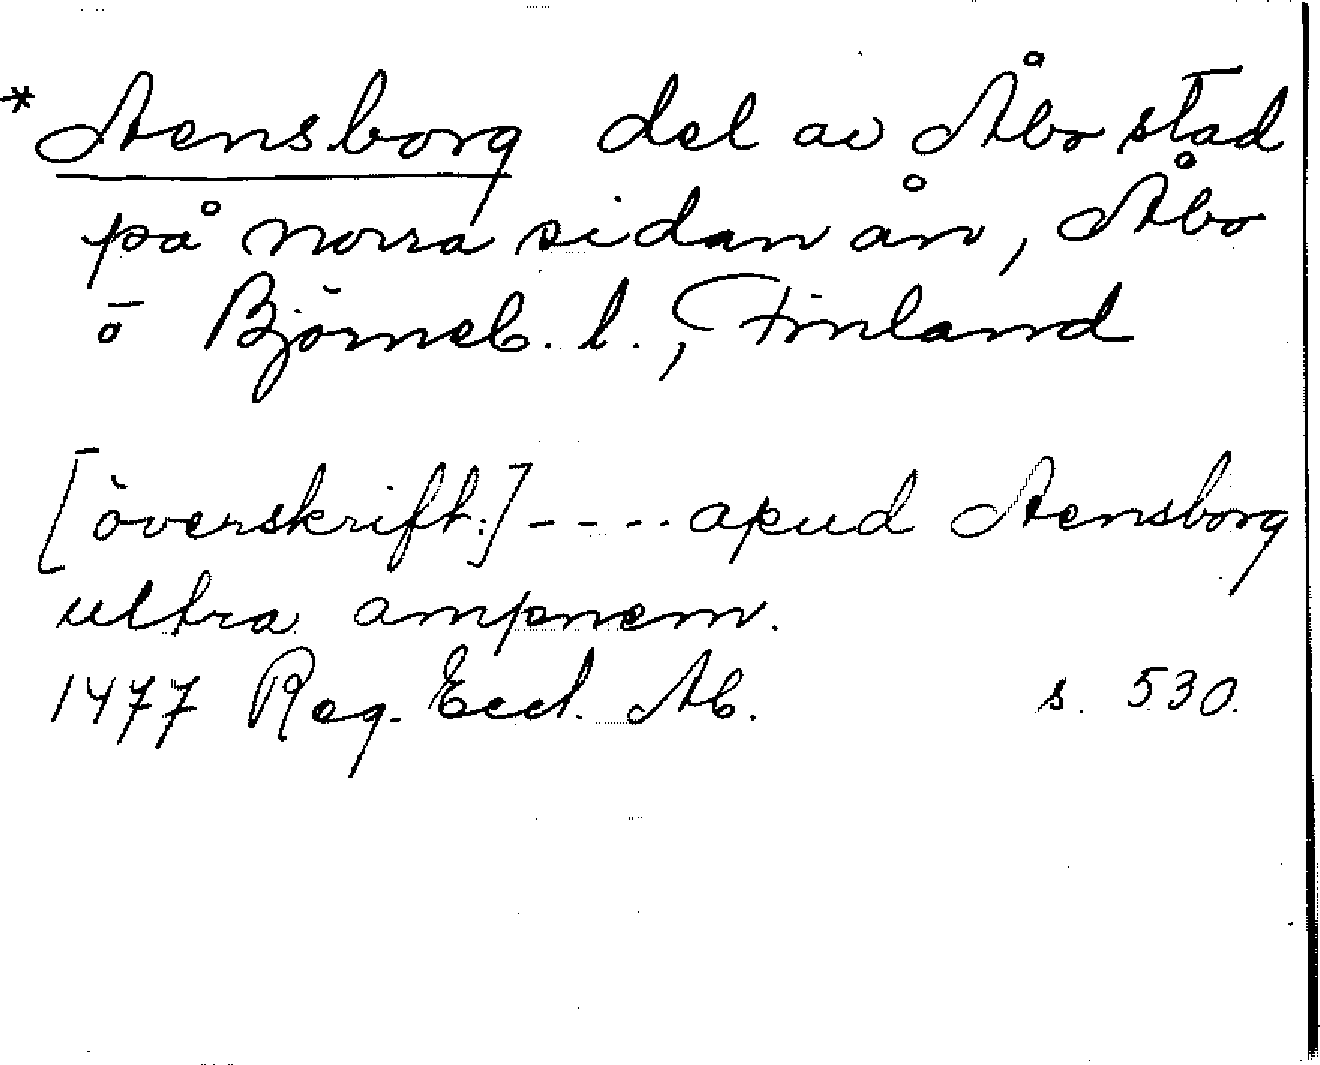 * Aensborg del av Åbo stad
på norra sidan ån, Åbo
ö Björneb. l., Finland
[överskrift:] - - - - apud Aensborg
ultra ampnem.
1477 Reg. Eccl. Ab. s. 530.